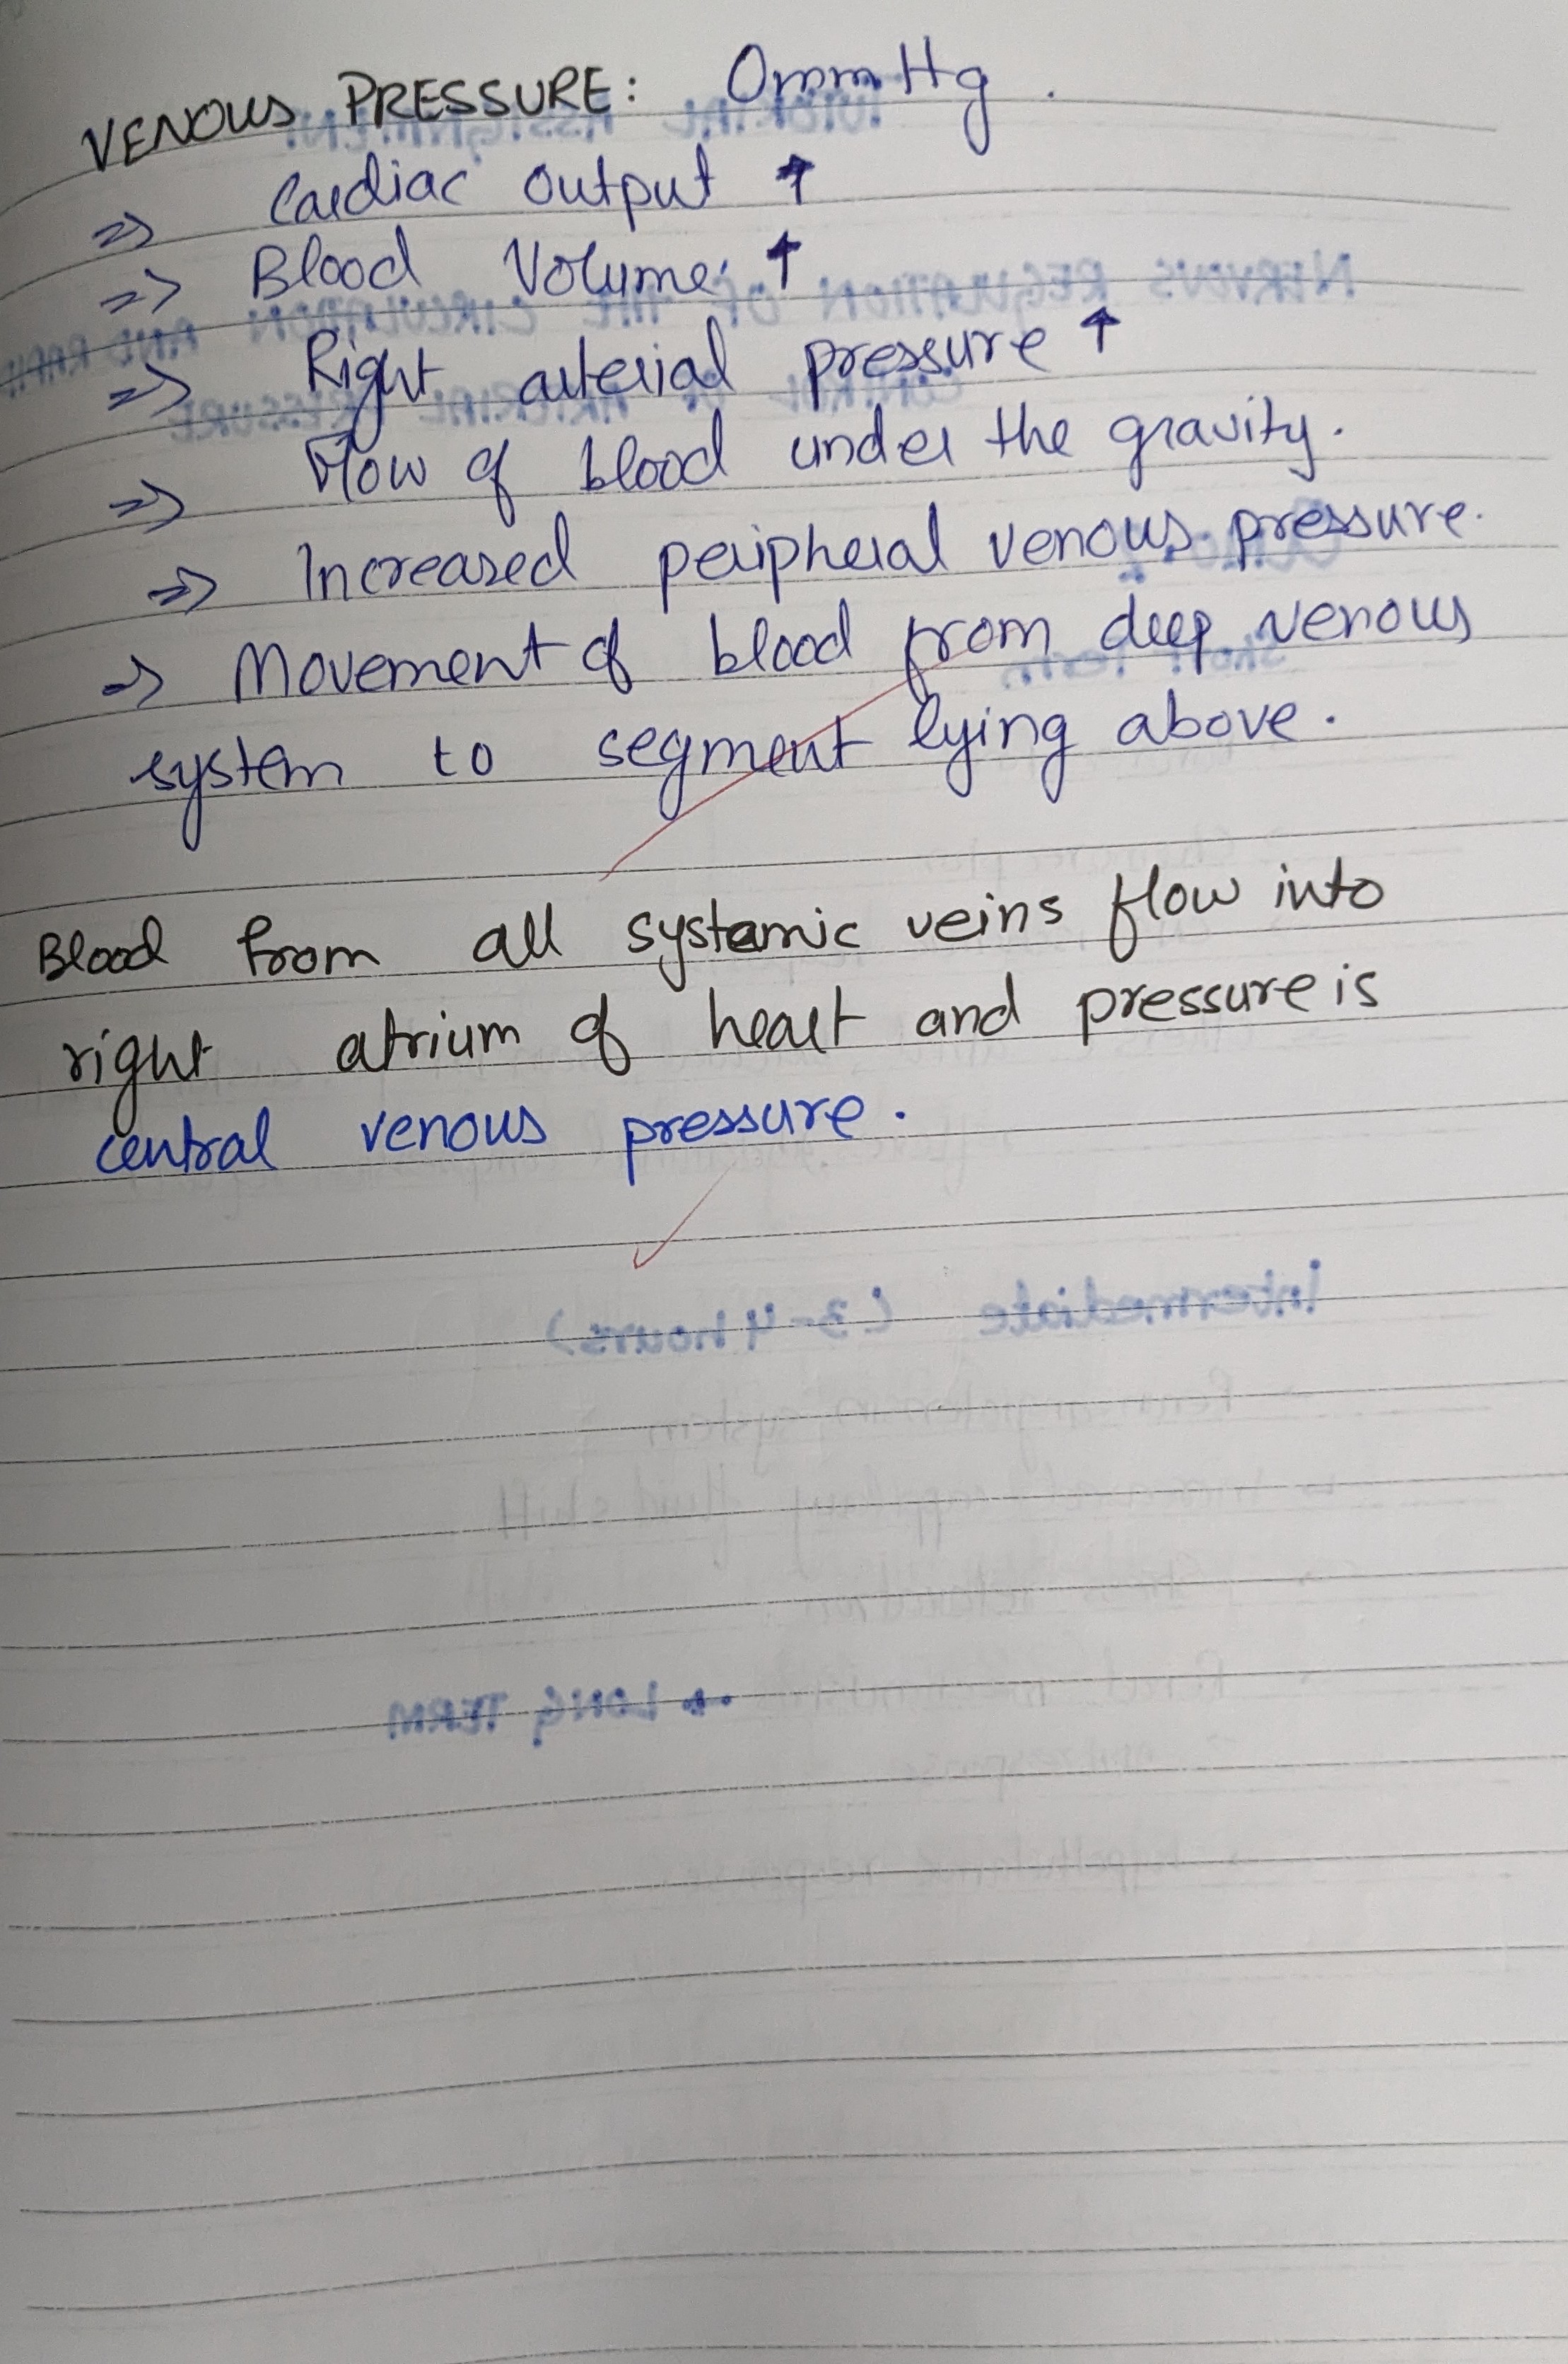 VENOUS PRESSURE: 0mmHg.
⇒ Cardiac output ↑
⇒ Blood Volume ↑
⇒ Right arterial pressure ↑
⇒ Flow of blood under the gravity.
⇒ Increased peripheral venous pressure.
⇒ Movement of blood from deep venous
system to segment lying above.
Blood from all systamic veins flow into
right atrium of heart and pressure is
central venous pressure.